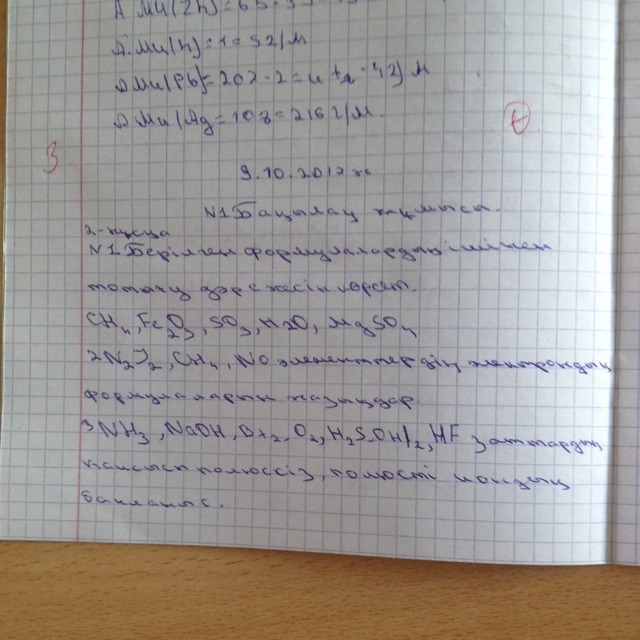 Mu(Zn)=65
Mu(H)=1=
Mu(Pb)=207·2=
Mu(Ag=108=216 г/м
3
9.10.2017 ж
N1 Бақылау жұмысы.
2-нұсқа
N1 Берілген формулалардың ішінен
тотығу дәрежесін көрсет.
CH4, Fe2O3, SO3, H2O, MgSO4
2) CH4, элементтердің электрондық
формулаларын жазыңдар
3 NH3, NaOH, O2, HF заттардың
қайсысы полюссіз, полюсті иондық
байланыс.